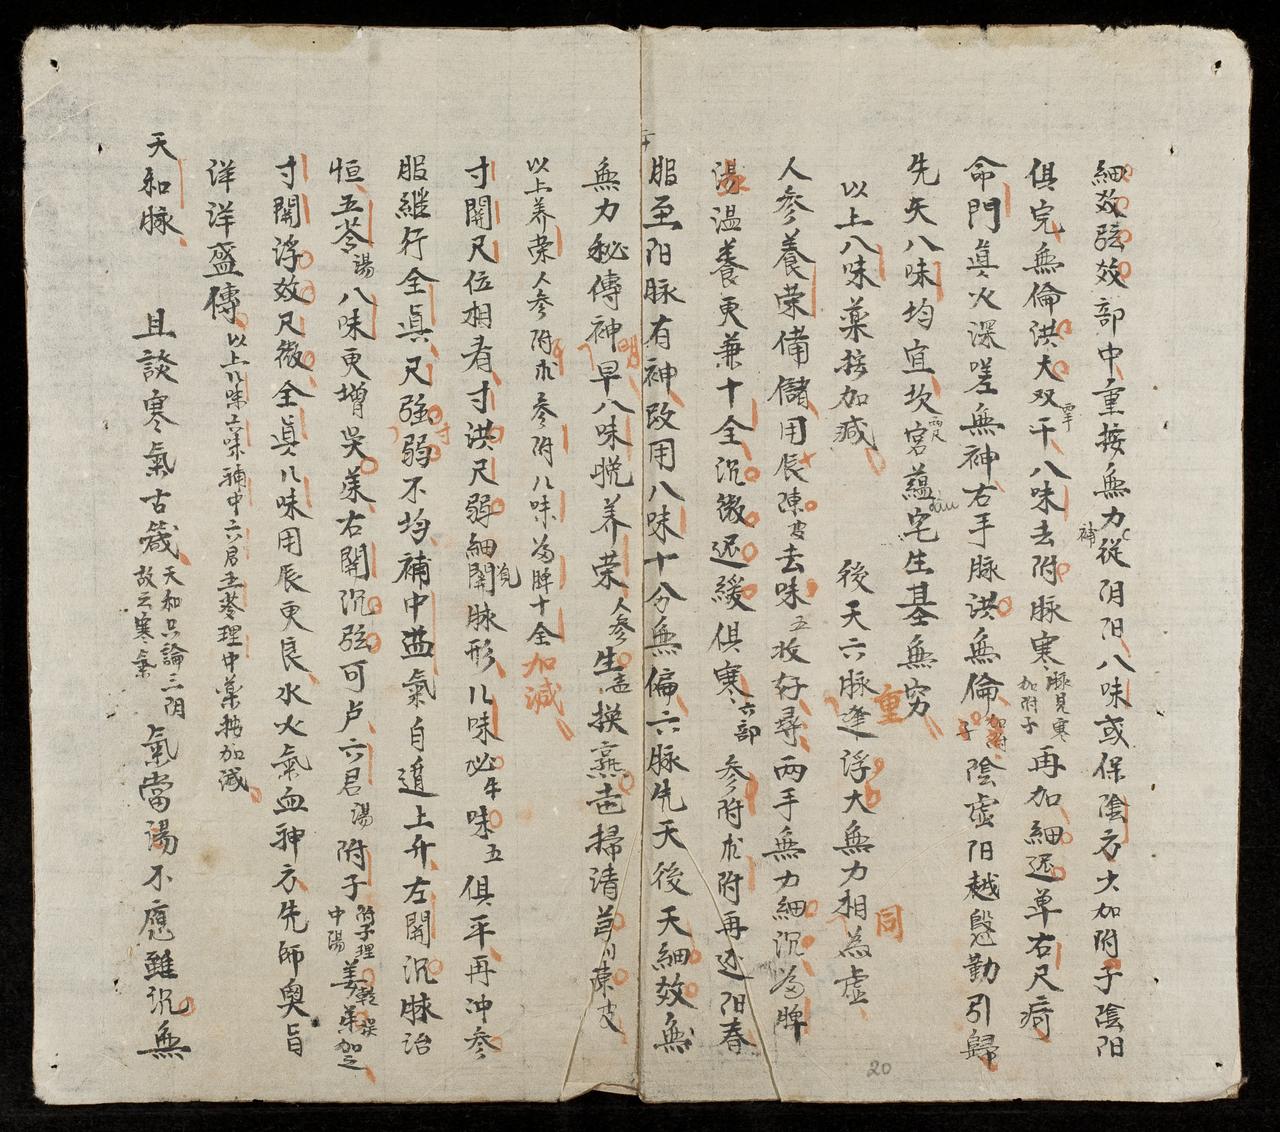 細效弦效部中重按無力從阴阳八味或保陰方大加附子陰阳
俱完無倫洪大双千八味去附脉寒脉見寒加附子再加細遲单右尺痏
命門真火深嗟無神右手脉洪無倫加附子陰虚阳越慇勤引歸
先天八味均宜坎宮蘊宅生基無穷
以上八味藥按加减 後天六脉逢浮大無力相為虚
人參養荣備儲用辰陳皮去味五收好尋兩手無力細沉為脾
湯温養更兼十全沉微迟緩俱寒六部參附朮附再述阳春
服至阳脉有神改用八味十分無偏六脉先天後天細效無
無力秘傳神早八味晚养荣人參生孟換熏芪掃清芎川陳皮
以上养荣人參附朮參附八味為脾十全加減
寸關尺位相看寸洪尺弱細關脉形八味必牛味五俱平再冲參
服継行全真尺强弱不均補中益氣自遁上升左関沉脉治
恒五苓湯八味更增吳萸右関沉弦可卢六君湯附子附子理中陽姜乾
寸関浮效尺微全真八味用辰更良水火氣血神方先師奥旨
洋洋盛傳以上八味六味補中六君五苓理中藥加減
天和脉 且談寒氣古箴天和只論三阴故云寒氣 氣當湯不應雖沉無
重
同
20